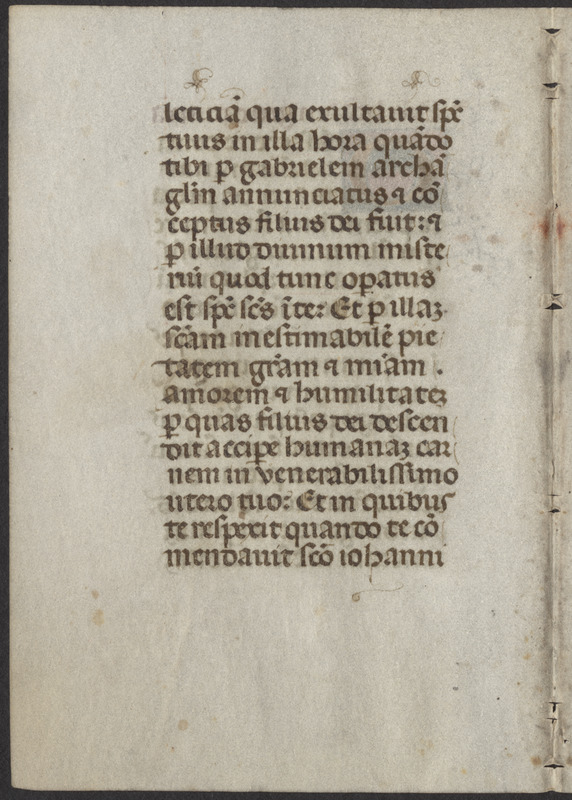 leticiā qua exultauit sp̄c
tuus in illa hora quādo
tibi ꝑ gabrielem archā
gl̄m annunciatus ⁊ cō
ceptus filius dei fuit: ⁊
ꝑ illud diuinum miste
riū quod tunc oꝑatus
est sp̄c sc̄s ī te: Et ꝑ illaꝫ
sc̄am inestimabilē pie
tatem gr̄am ⁊ mīam .
amorem ⁊ humilitateꝫ
ꝑ quas filius dei descen
dit acciꝑe humanaꝫ car
nem in venerabilissimo
utero tuo: Et in quibus
te respexit quando te cō
mendauit sc̄o iohanni